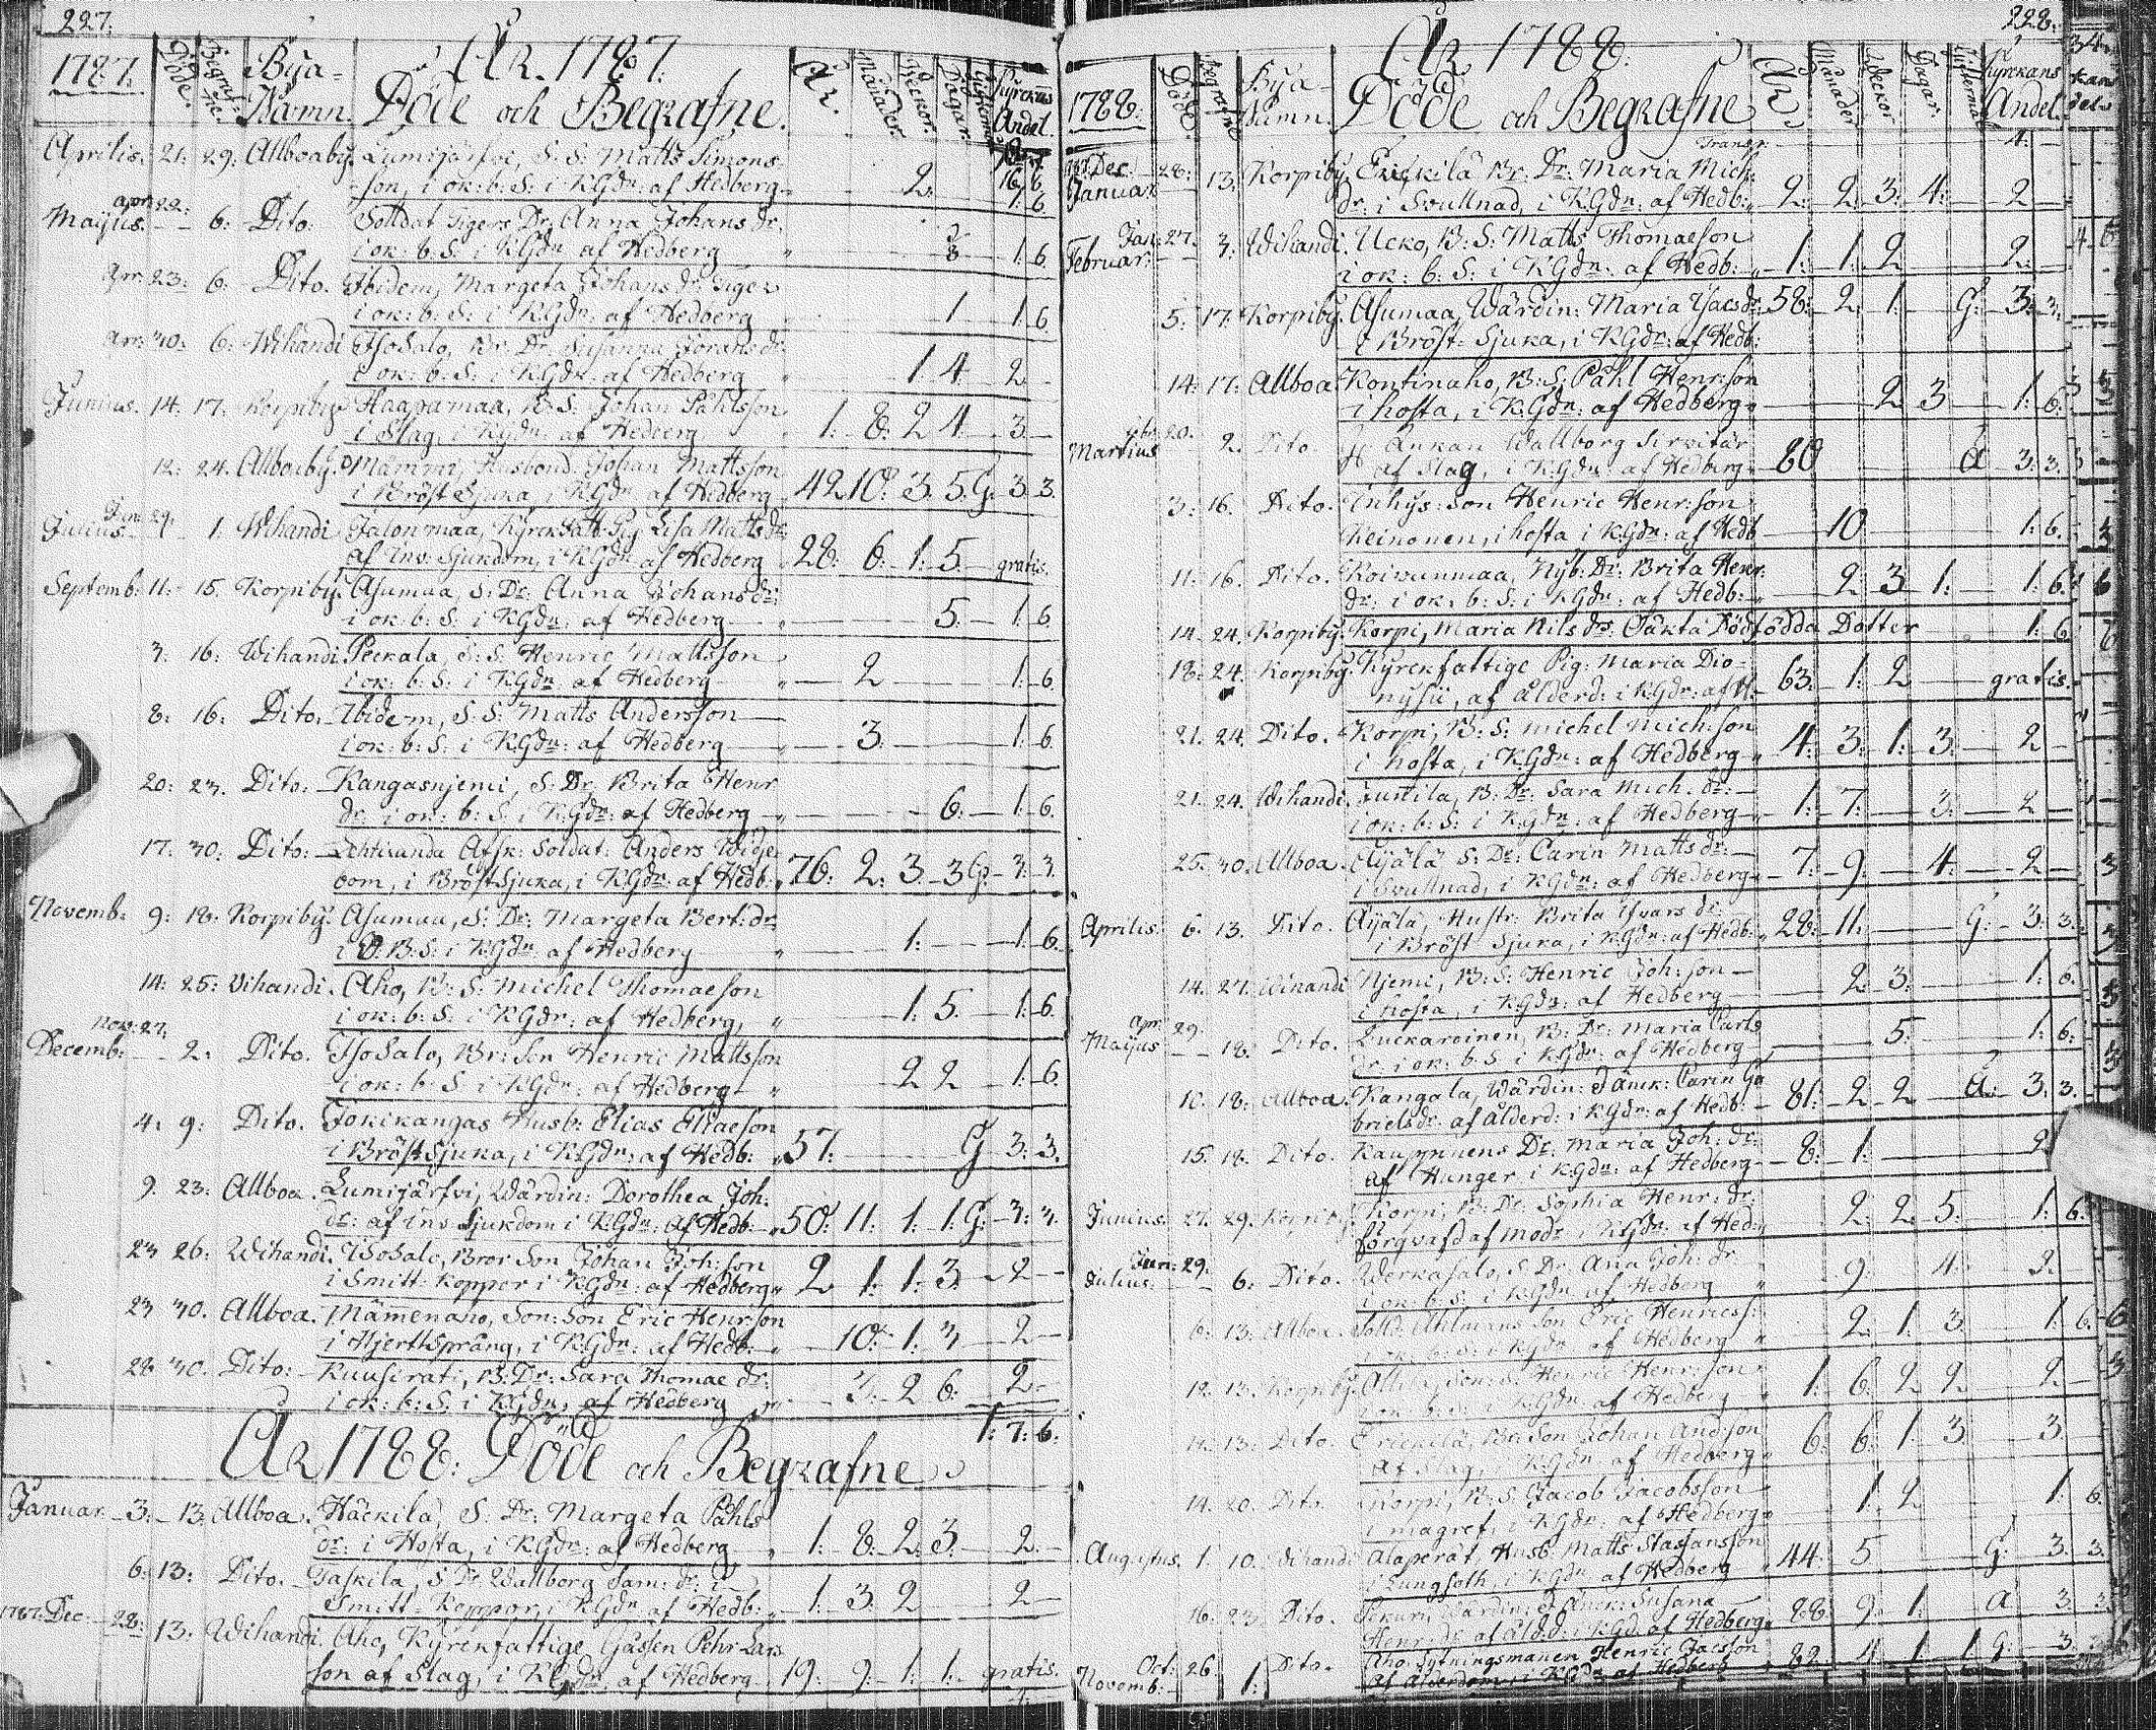 227.
1787. Döde. Begrafne. Bya-Namn. År 1787. Döde och Begrafne. År. Månader. Wekor. Dagar. Kyrckans Andel.
Aprilis. 21: 29: Allboaby. Lumijärfvi, S: S: Matts Simons-
son, i ok: b: S: i KGdn: af Hedberg 2. 1: 6
Majus. apr: 22: 6: Dito: Solldat Tigers Dr. Anna Johans dr.
i ok: b: S: i KGdn af Hedberg 3 1: 6.
apr: 23: 6: Dito. Ibidem, Margeta Johans dr: Tiger
i ok: b: S: i KGdn: af Hedberg 1 1: 6.
apr: 30: 6: Wihandi IsoSalo, Br. Dr. Susanna Jörans dr:
i ok: b: S: i KGdn: af Hedberg 1 4. 2
Junius. 14: 17: Korpiby. Haapamaa, B: S: Johan Påhlsson
i Slag, i KGdn: af Hedberg 1: 8: 2 4: 3.
18: 24. Allboaby. Mämmi, Husbond. Johan Mattsson
i Bröst Sjuka, i KGdn: af Hedberg 42 10: 3. 5. G: 3 3.
Julius. Jun: 29: 1: Wihandi. Jalonmaa, Kyrckfatt: Pig Lisa Matts dr:
af Inv: Sjukdom, i KGdn: af Hedberg 28: 6: 1: 5. gratis.
Septemb: 11: 15. Korpiby. Asumaa, S: Dr: Anna Johans dr:
i ok: b: S: i KGdn: af Hedberg 5. 1: 6.
3: 16: Wihandi. Peckala, S: S: Henric Mattsson
i ok: b: S: i KGdn: af Hedberg 2 1: 6.
8: 16: Dito. Ibidem, S: S: Matts Andersson
i ok: b: S: i KGdn: af Hedberg 3. 1: 6.
20: 23. Dito: Kangasnjemi, S: Dr. Brita Henr
dr: i ok: b: S: i KGdn: af Hedberg 6: 1: 6.
17: 30: Dito: Lehtiranda Afsk: Soldat: Anders Widge
oom, i Bröst Sjuka, i KGdn: af Hedb: 76: 2: 3. 3 G: 3: 3.
Novemb: 9: 18: Korpiby. Asumaa, S: Dr: Margeta Bert: dr:
i O: B: S: i KGdn: af Hedberg 1: 1: 6.
14: 25: Vihandi. Aho, B: S: Michel Thomaeson
i ok: b: S: i KGdn: af Hedberg 1: 5. 1: 6.
Decemb: Nov: 27: 2. Dito. IsoSalo, Br: Son Henric Mattsson
i ok: b: S: i KGdn: af Hedberg 2 2 1: 6.
4: 9: Dito. Jokikangas Husb: Elias Eliaeson
i Bröst Sjuka, i KGdn: af Hedb: 57: G 3: 3.
9. 23: Allboa. Lumijärfvi, Wärdin: Dorothea Joh:
dr: af Inv Sjukdom i KGdn: af Hedb: 50: 11: 1: 1: G: 3: 3.
23 26: Wihandi. IsoSalo, Bror Son Johan Joh: son
i Smitt: Koppor i KGdn: af Hedberg 2 1: 1: 3. 2
23 30. Allboa. Mämenaho, Son: Son Eric Henrson
i Hjerttsprång, i KGdn: af Hedb: 10: 1: 3 2
28 30. Dito: Kuusirati, B: Dr: Sara Thomae dr:
i ok: b: S: i KGdn, af Hedberg 3: 2 6: 2
1: 7: 6:
År 1788: Döde och Begrafne
Januar. 3: 13: Allboa. Häckilä, S: Dr: Margeta Påhls
dr: i Hosta, i KGdn: af Hedberg 1: 8: 2: 3. 2.
6: 13: Dito. Taskila, S Dr: Wallborg Sam: dr: i
Smitt: Koppor, i KGdn af Hedb: 1: 3: 2 2
1787: Dec: 28: 13: Wihandi. Aho, Kyrckfattige Gåssen Pehr Lars
son af Slag, i KGdn: af Hedberg 19: 9: 1: 1: gratis.
228.
1788. Döde. Begrafne. Bya-Namn. År 1788. Döde och Begrafne År. Månader Wekor Dagar Kyrckans Andel.
Transp: 4:
Dec: 28: Januar 13: Korpiby. Erickilä Br: Dr: Maria Mich:
dr: i Svullnad, i KGdn: af Hedb: 2: 2: 3: 4: 2
Februar: Jan: 27: 3: Wihandi. Ucko, B: S: Matts Thomaeson
i ok: b: S: i KGdn: af Hedb: 1: 1: 2 2:
5: 17: Korpiby. Asumaa, Wärdin: Maria Isacs dr: 58: 2: 1: G: 3: 3:
i Bröst-Sjuka, i KGdn: af Hedb:
14: 17: Allboa. Kontinaho, B: S: Påhl Henr:son
i hosta, i KGdn: af Hedberg 2 3 1: 6:
Martius 20: 2: Dito. Enkan Wallborg
af Slag, i KGdn: af Hedberg 80 3: 3:
3: 16: Dito. Inhys: Son Henric Henr:son
Keinonen, i hosta i KGdn: af Hedb 10 1: 6:
11: 16. Dito. Koivunmaa, Nyb: Dr: Brita Henr:
dr: i ok: b: S: i KGdn: af Hedb: 2: 3 1: 1: 6:
14: 24. Korpiby. Korpi, Maria Nils drs Oäkta Dödfödda Dotter 1: 6
18: 24. Korpiby. Kyrckfattige Pig: Maria Dio-
nysii, af ålderd: i KGdn: af H: 63: 1: 2 gratis.
21. 24. Dito. Korpi, B: S: Michel Mich:son
i hosta, i KGdn: af Hedberg 4: 3: 1: 3: 2
21: 24. Wihandi. Junttila, B: Dr: Sara Mich. dr:
i ok: b: S: i KGdn: af Hedberg 1: 7: 3: 2
25: 30. Allboa. Äijälä S: Dr: Carin Matts dr:
i Svullnad, i KGdn: af Hedberg 7: 9: 4: 2
Aprilis. 6: 13. Dito. Äijälä, Hustr: Brita Ivars dr:
i Bröst Sjuka, i KGdn: af Hedb: 28: 11: G: 3: 3:
14: 27: Wihandi Njemi, B: S: Henric Joh:son
i hosta, i KGdn: af Hedberg 2: 3: 1: 6:
Majus Apr: 29: 18: Dito. Luckaroinen, B: Dr: Maria Carls
dr: i ok: b: S: i KGdn: af Hedberg 5: 1: 6:
10: 18: Allboa. Kangala, Wärdin: Änck: Carin Ga
brielsdr: af ålderd: i KGdn: af Hedb: 81: 2 2 Ä: 3: 3.
15: 18: Dito. Kauppnens Dr: Maria Joh: dr:
af Hunger i KGdn: af Hedberg 8: 1: 2
Junius. 27. 29. Korpiby. Korpi, B: Dr: Sophia Henr: dr:
förqvafd af modr: i KGdn: af Hed: 2: 2: 5: 1: 6:
Julius: Jun: 29: 6: Dito. Werkasalo, S: Dr: Ana Joh: dr:
i ok: b: S: i KGdn: af Hedberg 9: 4: 2:
6: 13: Allboa. Solld: Uhlmans Son Eric Henricss:
i ok: b: S: i KGdn: af Hedberg 2 1: 3 1: 6:
12: 13. Korpiby. Son: S: Henric Henr:son
i ok: b: S: i KGdn: af Hedberg 1: 6: 2 2 2
13: Dito. Erickilä, Br: Son Johan And:son
af Slag, i KGdn: af Hedberg 6: 6: 1: 3 3
14. 20. Dito Korpi, B: S: Jacob Jacobsson
i magref: i KGdn: af Hedberg 1: 2 1: 6:
Augustus. 1: 10. Wihandi Alaperät, Husb: Matts Staffansson
i Lungsoth, i KGdn: af Hedberg 44: 5 G: 3. 3.
16: 23. Dito. Wärdin: Änck: Susana
Henr: dr: af åld:d: i KGd: af Hedberg 88: 9: 1: Ä 3: 3.
Novemb: Oct: 26 1: Dito. Aho, Henric Jacsson
Af Ålderdom, i KGdn: af Hedberg 82 4 1 1 G: 3: